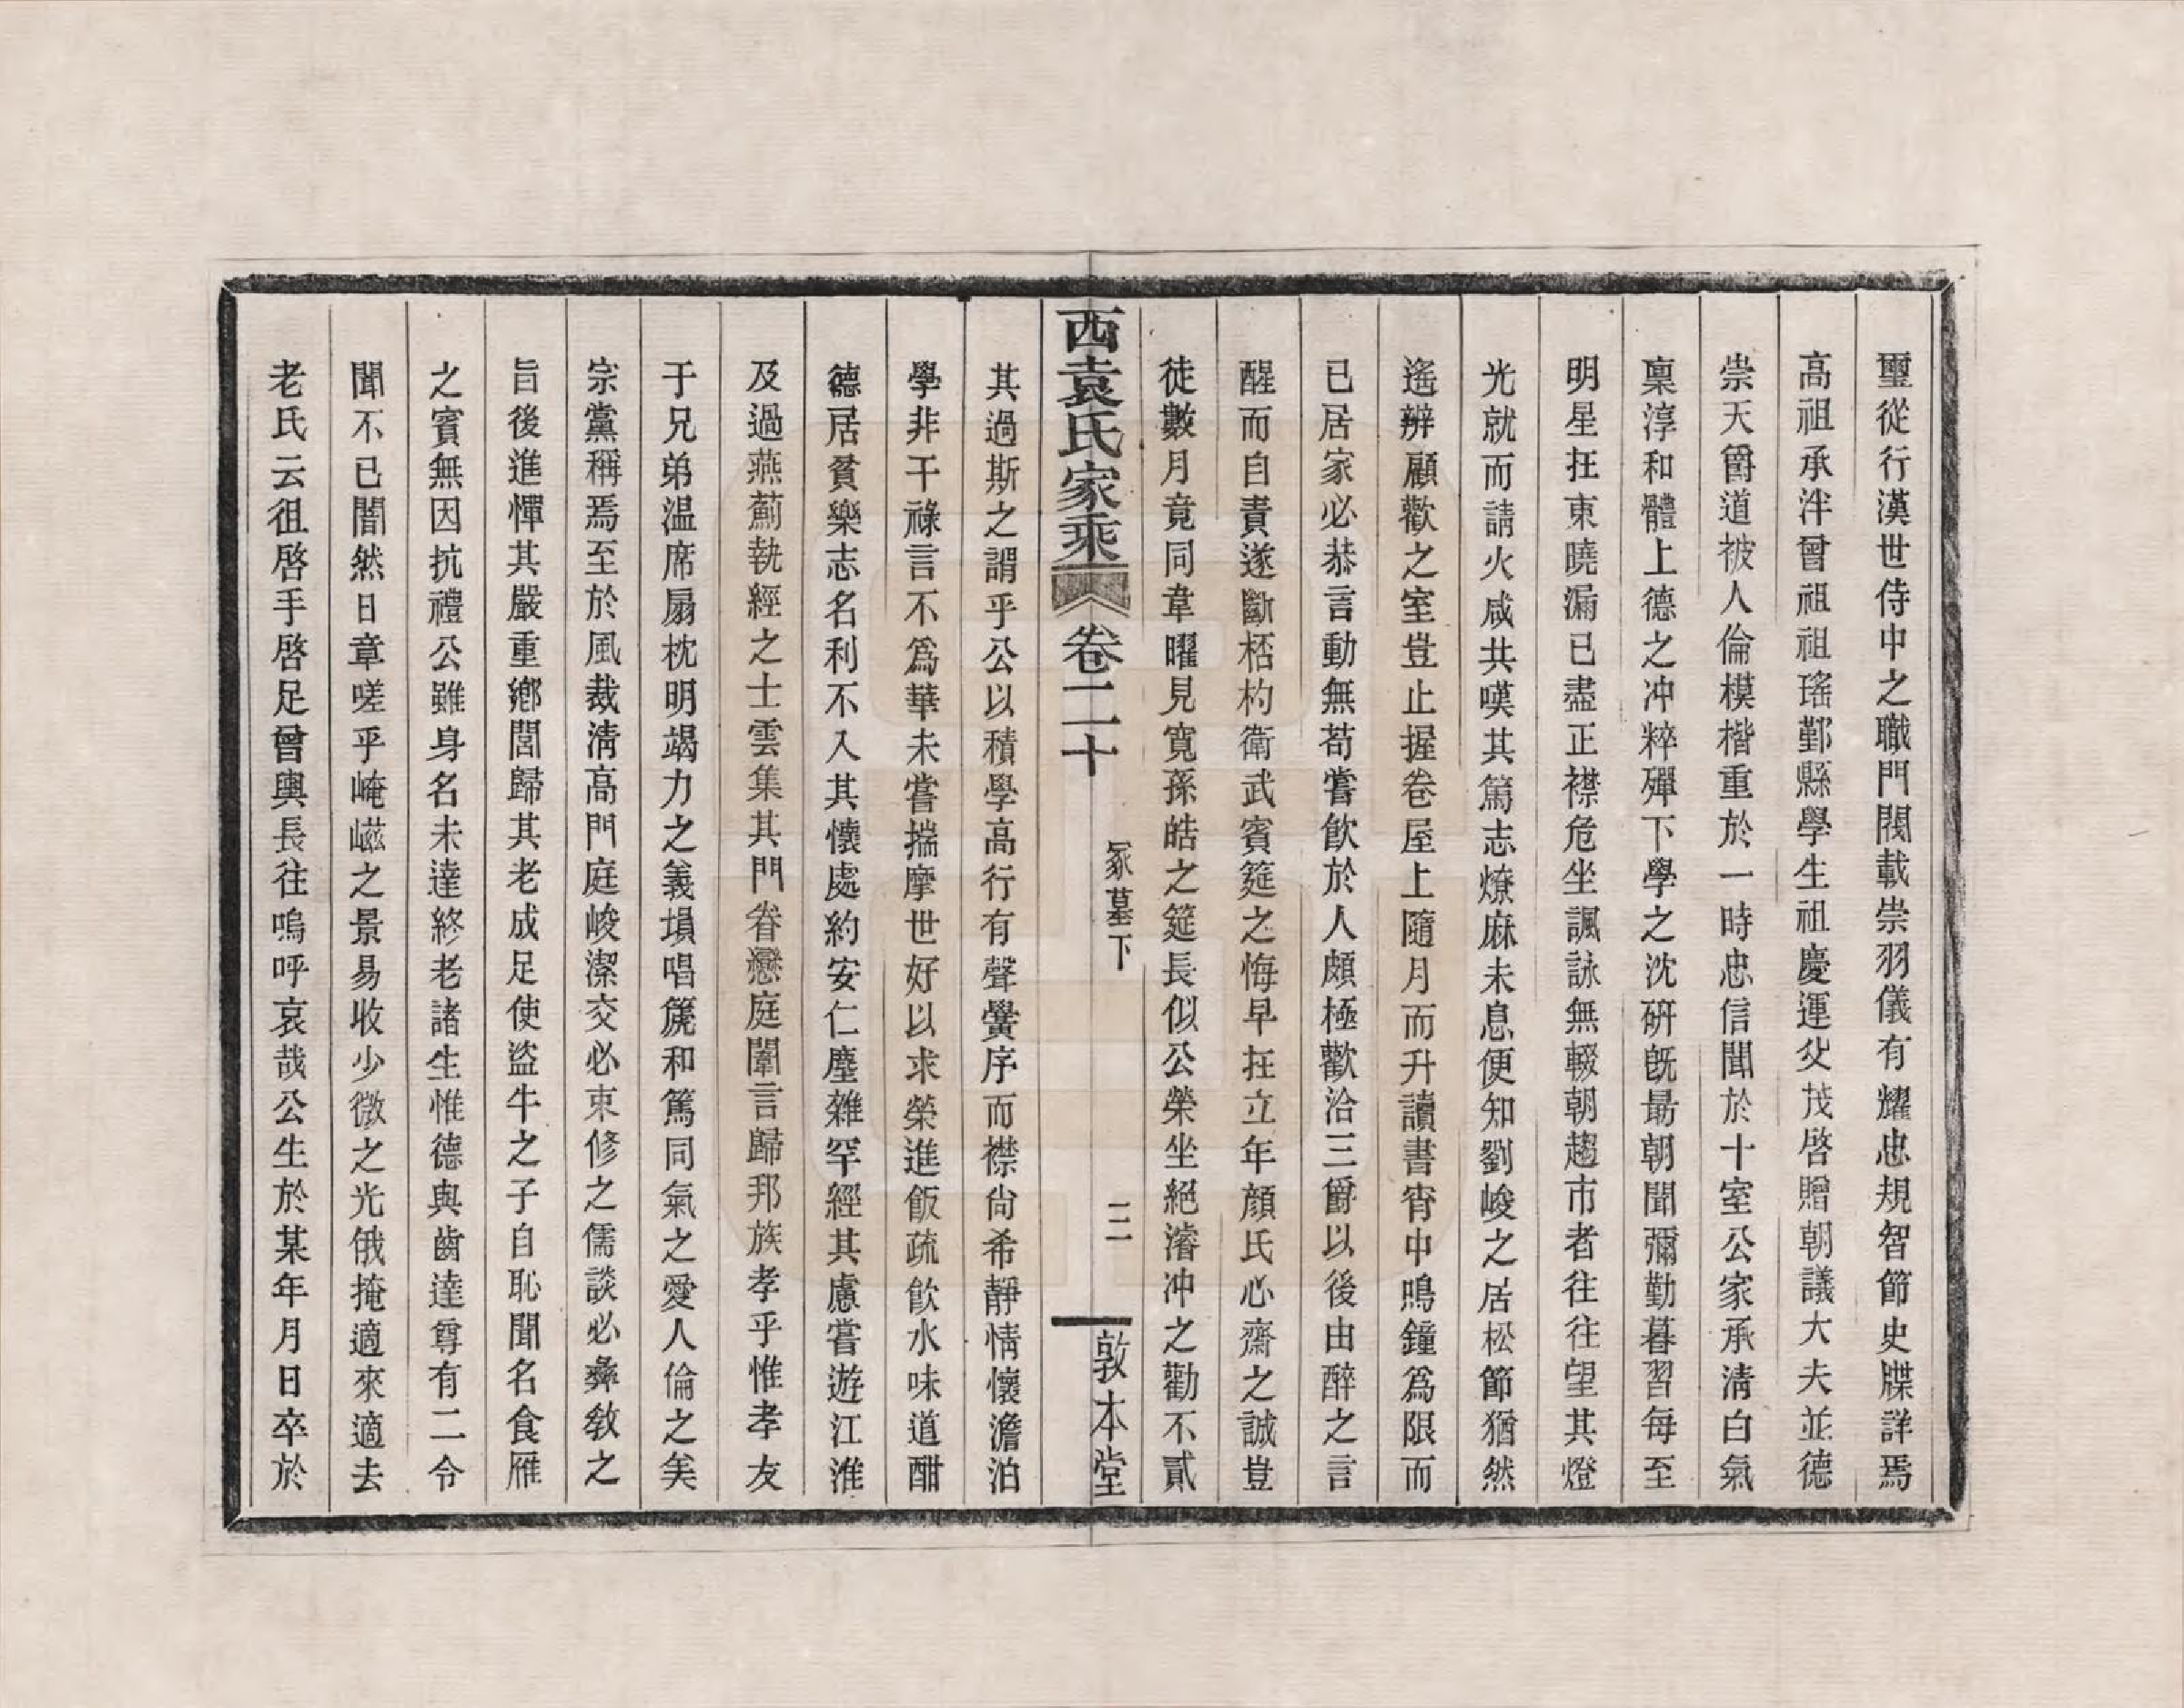 璽從行漢世侍中之職門閥載崇羽儀有耀忠規智節史牒詳焉
高祖承泮曾祖祖瑤鄞縣學生祖慶運父茂啓贈朝議大夫並德
崇天爵道被人倫模楷重於一時忠信聞於十室公家承清白氣
稟淳和體上德之冲粹殫下學之沈硏旣勗朝聞彌勤暮習每至
明星在東曉漏已盡正襟危坐諷詠無輟朝趨市者往往望其燈
光就而請火咸共嘆其篤志燎麻未息便知劉峻之居松節猶然
遙辨顧歡之室豈止握卷屋上隨月而升讀書宵中鳴鐘爲限而
已居家必恭言動無苟嘗飮於人頗極歡洽三爵以後由醉之言
醒而自責遂斷桮杓衛武賓筵之悔早在立年顏氏心齋之誠豈
徒數月竟同韋曜見寬孫皓之筵長似公榮坐絕濬冲之勸不貳
西袁氏家乘 卷二十 冢墓下 三 敦本堂
其過斯之謂乎公以積學高行有聲黌序而襟尙希靜情懷澹泊
學非干祿言不爲華未嘗揣摩世好以求榮進飯疏飮水味道酣
德居貧樂志名利不入其懷處約安仁塵雜罕經其慮嘗遊江淮
及過燕薊執經之士雲集其門眷戀庭闈言歸邦族孝乎惟孝友
于兄弟温席扇枕明竭力之義塤唱篪和篤同氣之愛人倫之美
宗黨稱焉至於風裁淸高門庭峻潔交必束修之儒談必彝敎之
旨後進憚其嚴重鄕閭歸其老成足使盜牛之子自恥聞名食雁
之賓無因抗禮公雖身名未達終老諸生惟德與齒達尊有二令
聞不已闇然日章嗟乎崦嵫之景易收少微之光俄掩適來適去
老氏云徂啓手啓足曾輿長往嗚呼哀哉公生於某年月日卒於